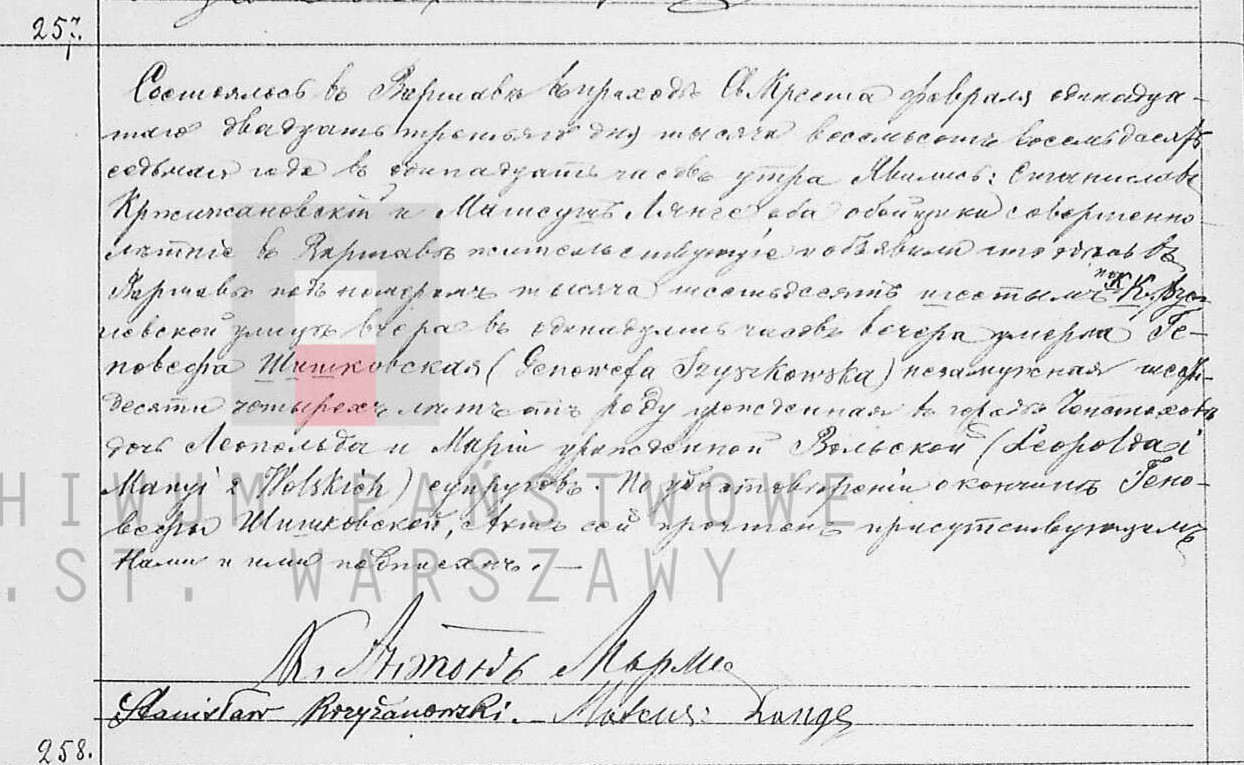 257.
Состоялось въ Варшавѣ въ приходѣ Св Креста февраля одинадца-
таго двадцать третьяго дня тысяча восемьсотъ восемьдесятъ
седьмаго года въ одинадцать часовъ утра Явились: Станиславъ
Кржижановскій и Матеушъ Лянге, оба обойщики совершенно-
лѣтніе въ Варшавѣ жительствующіе и объявили что въ
Варшавѣ подъ номеромъ тысяча шестьдесятъ шестымъ по Кру-
левской улицѣ вчера въ одинадцать часовъ вечера умерла Ге-
новефа Шишковская (Genowefa Szyszkowska) незамужная шести-
десяти четырехъ лѣтъ отъ роду урожденная въ городѣ Ченстоховѣ
дочь Леопольда и Маріи урожденной Вольской (Leopolda i
Maryi z Wolskich) супруговъ. По удостовѣреніи о кончинѣ Гено-
вефы Шишковской, Актъ сей прочтенъ присутствующимъ
Нами и ими подписанъ. —
К. Антонъ
Stanisław Krzyżanowski. Lange
258.
ARCHIWUM PAŃSTWOWE
M.ST. WARSZAWY